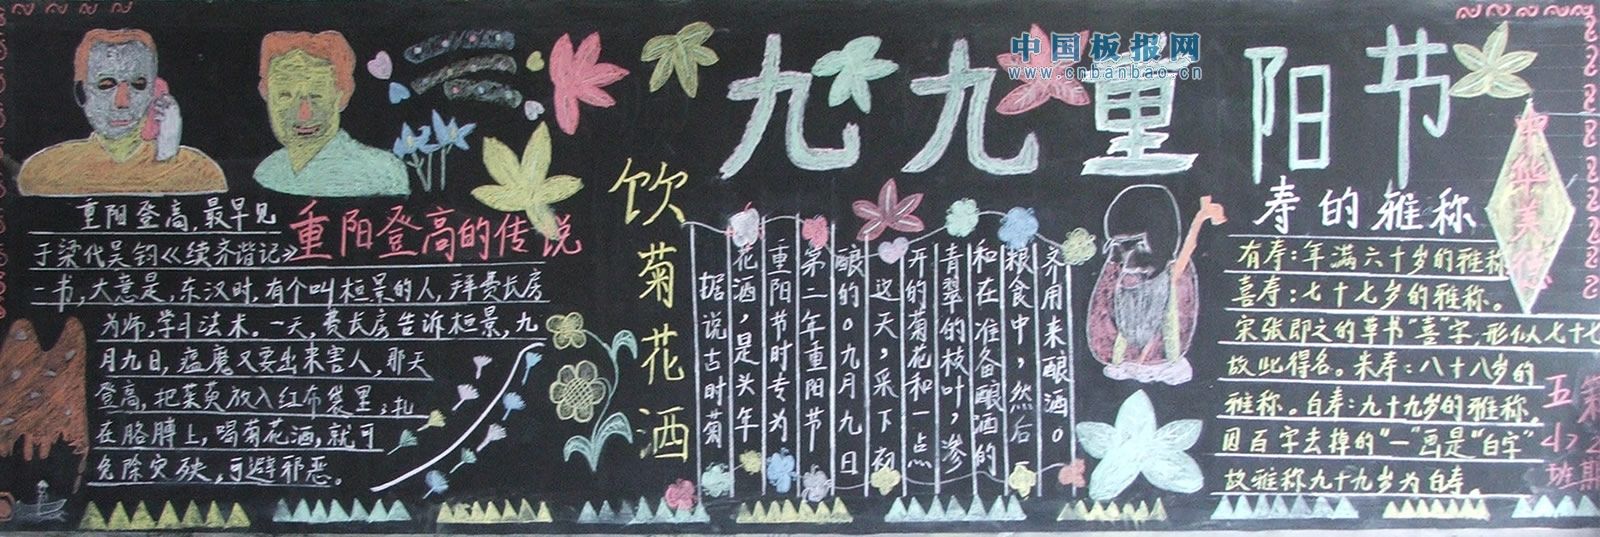 九九重阳节
中国板报网
www.cnbanbao.cn
重阳登高的传说
重阳登高,最早见
于梁代吴钧《续齐谐记》
一书,大意是,东汉时,有个叫桓景的人,拜费长房
为师,学习法术。一天,费长房告诉桓景,九
月九日,瘟魔又要出来害人,那天
登高,把茱萸放入红布袋里,扎
在胳膊上,喝菊花酒,就可
免除灾殃,可避邪恶。
饮菊花酒
据说古时菊
花酒,是头年
重阳节时专为
第二年重阳节
酿的。九月九日
这天,采下初
开的菊花和一点
青翠的枝叶,渗
和在准备酿酒的
粮食中,然后一
齐用来酿酒。
寿的雅称
有寿:年满六十岁的雅称
喜寿:七十七岁的雅称。
宋张即之的草书“喜”字,形似七十七
故此得名。朱寿:八十八岁的
雅称。白寿:九十九岁的雅称,
因百字去掉的“一”画是“白字”
故雅称九十九岁为白寿。
中华美德
五小班
第2期